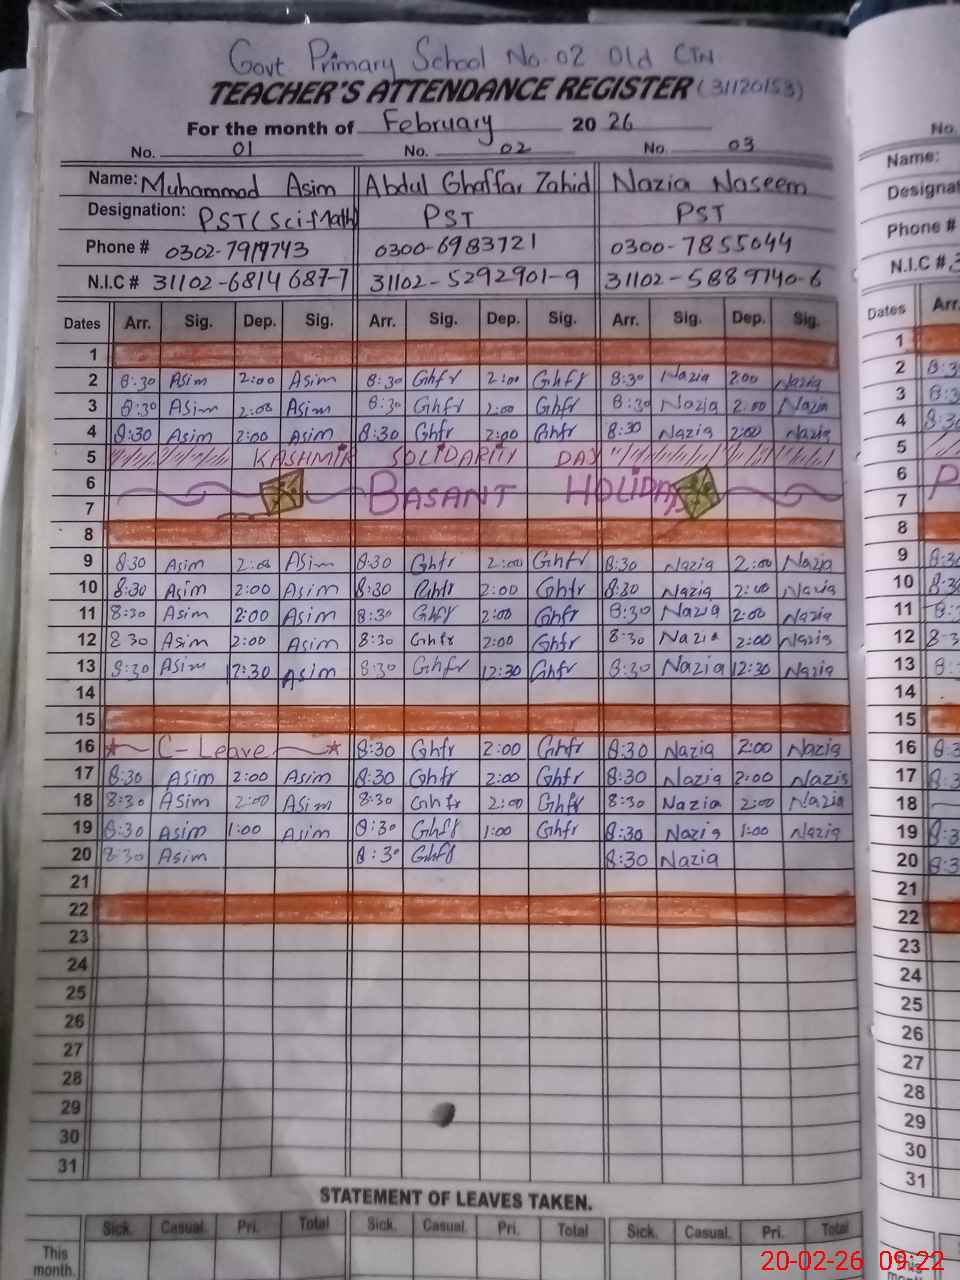 Govt Primary School No. 02 Old CTN
TEACHER'S ATTENDANCE REGISTER (31120153)
For the month of February 20 26
No. 01 No. 02 No. 03
Name: Muhammad Asim Abdul Ghaffar Zahid Nazia Naseem
Designation: PST (Sci-Math) PST PST
Phone # 0302-7919743 0300-6983721 0300-7855044
N.I.C # 31102-6814687-7 31102-5292901-9 31102-5889740-6
Dates Arr. Sig. Dep. Sig. Arr. Sig. Dep. Sig. Arr. Sig. Dep. Sig.
1
2 8:30 Asim 2:00 Asim 8:30 Ghfr 2:00 Ghfr 8:30 Nazia 2:00 Nazia
3 8:30 Asim 2:00 Asim 8:30 Ghfr 2:00 Ghfr 8:30 Nazia 2:00 Nazia
4 8:30 Asim 2:00 Asim 8:30 Ghfr 2:00 Ghfr 8:30 Nazia 2:00 Nazia
5 KASHMIR SOLIDARITY DAY
6 BASANT HOLIDAYS
7
8
9 8:30 Asim 2:00 Asim 8:30 Ghfr 2:00 Ghfr 8:30 Nazia 2:00 Nazia
10 8:30 Asim 2:00 Asim 8:30 Ghfr 2:00 Ghfr 8:30 Nazia 2:00 Nazia
11 8:30 Asim 2:00 Asim 8:30 Ghfr 2:00 Ghfr 8:30 Nazia 2:00 Nazia
12 8:30 Asim 2:00 Asim 8:30 Ghfr 2:00 Ghfr 8:30 Nazia 2:00 Nazia
13 8:30 Asim 12:30 Asim 8:30 Ghfr 12:30 Ghfr 8:30 Nazia 12:30 Nazia
14
15
16 C-Leave 8:30 Ghfr 2:00 Ghfr 8:30 Nazia 2:00 Nazia
17 8:30 Asim 2:00 Asim 8:30 Ghfr 2:00 Ghfr 8:30 Nazia 2:00 Nazia
18 8:30 Asim 2:00 Asim 8:30 Ghfr 2:00 Ghfr 8:30 Nazia 2:00 Nazia
19 8:30 Asim 1:00 Asim 8:30 Ghfr 1:00 Ghfr 8:30 Nazia 1:00 Nazia
20 8:30 Asim 8:30 Ghfr 8:30 Nazia
21
22
23
24
25
26
27
28
29
30
31
STATEMENT OF LEAVES TAKEN.
Sick. Casual. Pri. Total Sick. Casual. Pri. Total Sick. Casual. Pri. Total
This month.
No.
Name:
Phone #
N.I.C #
Dates Arr.
1
2
3
4
5
6
7
8
9
10
11
12
13
14
15
16
17
18
19
20
21
22
23
24
25
26
27
28
29
30
31
20-02-26 09:22